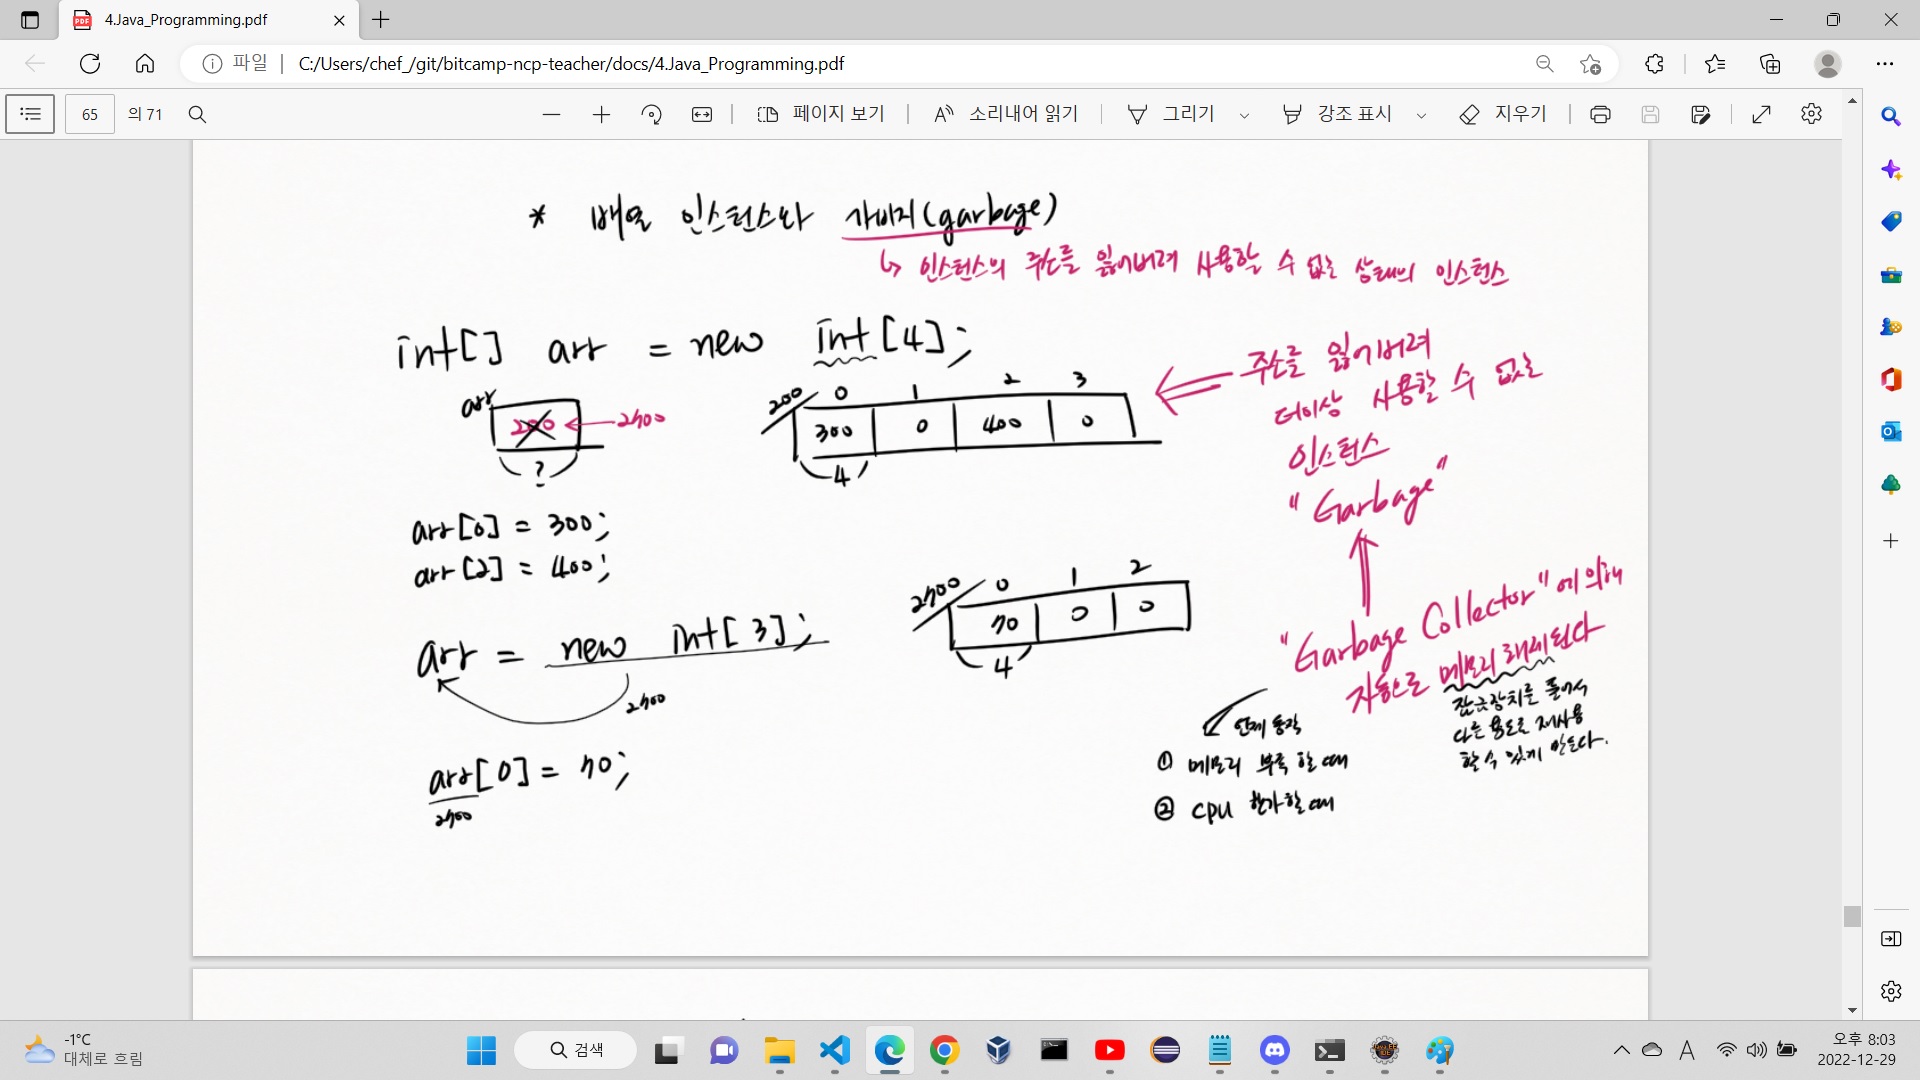 4.Java_Programming.pdf
파일 | C:/Users/chef_/git/bitcamp-ncp-teacher/docs/4.Java_Programming.pdf
65 의 71 페이지 보기 소리내어 읽기 그리기 강조 표시 지우기
* 배열 인스턴스와 가비지(garbage)
↳ 인스턴스의 주소를 잃어버려 사용할 수 없는 상태의 인스턴스
int[] arr = new int[4];
arr
200 ← 2700
?
200 0 1 2 3
300 0 400 0
4
주소를 잃어버려
더이상 사용할 수 없는
인스턴스
"Garbage"
arr[0] = 300;
arr[2] = 400;
arr = new int[3];
2700
2700 0 1 2
70 0 0
4
"Garbage Collector"에 의해
자동으로 메모리 해제된다
잠금장치를 풀어서
다른 용도로 재사용
할 수 있게 만든다.
언제 동작
① 메모리 부족할 때
② CPU 한가할 때
arr[0] = 70;
2700
-1°C
대체로 흐림
검색
A
오후 8:03
2022-12-29